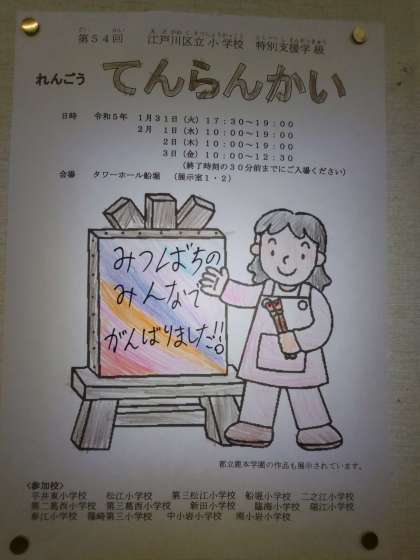 第54回 江戸川区立小学校 特別支援学級
れんごう てんらんかい
日時 令和5年 1月31日(火)17:30〜19:00
2月 1日(水)10:00〜19:00
2日(木)10:00〜19:00
3日(金)10:00〜12:30
(終了時刻の30分前までにご入場ください)
会場 タワーホール船堀 (展示室1・2)
みつばちの
みんなで
がんばりました!!
都立鹿本学園の作品も展示されています。
<参加校>
平井東小学校 松江小学校 第三松江小学校 船堀小学校 二之江小学校
第二葛西小学校 第三葛西小学校 新田小学校 臨海小学校 瑞江小学校
春江小学校 篠崎第三小学校 中小岩小学校 南小岩小学校